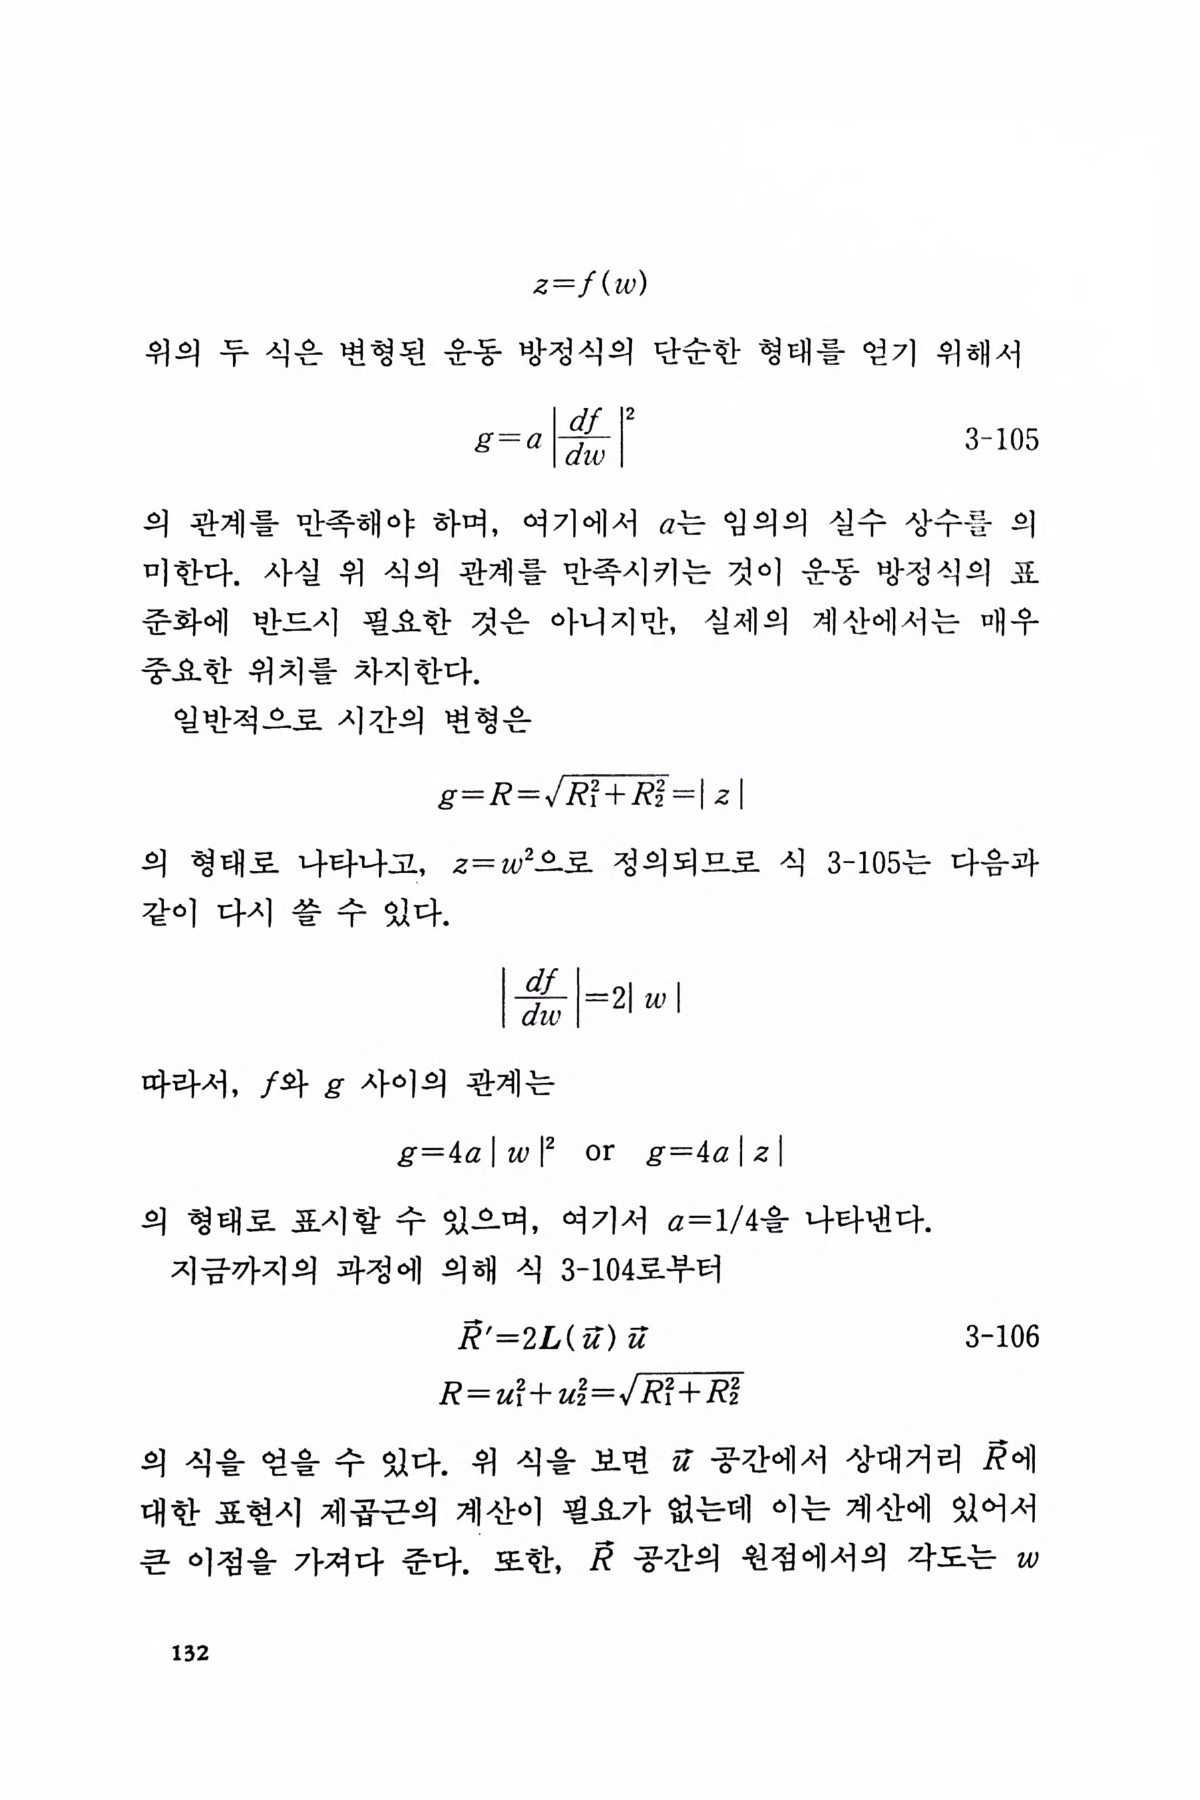 z=f(w)
위의 두 식은 변형된 운동 방정식의 단순한 형태를 얻기 위해서
g=a|df/dw|² 3-105
의 관계를 만족해야 하며, 여기에서 a는 임의의 실수 상수를 의
미한다. 사실 위 식의 관계를 만족시키는 것이 운동 방정식의 표
준화에 반드시 필요한 것은 아니지만, 실제의 계산에서는 매우
중요한 위치를 차지한다.
일반적으로 시간의 변형은
g=R=√(R₁²+R₂²)=|z|
의 형태로 나타나고, z=w²으로 정의되므로 식 3-105는 다음과
같이 다시 쓸 수 있다.
|df/dw|=2|w|
따라서, f와 g 사이의 관계는
g=4a|w|² or g=4a|z|
의 형태로 표시할 수 있으며, 여기서 a=1/4을 나타낸다.
지금까지의 과정에 의해 식 3-104로부터
R⃗′=2L(u⃗)u⃗ 3-106
R=u₁²+u₂²=√(R₁²+R₂²)
의 식을 얻을 수 있다. 위 식을 보면 u⃗ 공간에서 상대거리 R⃗에
대한 표현시 제곱근의 계산이 필요가 없는데 이는 계산에 있어서
큰 이점을 가져다 준다. 또한, R⃗ 공간의 원점에서의 각도는 w
132